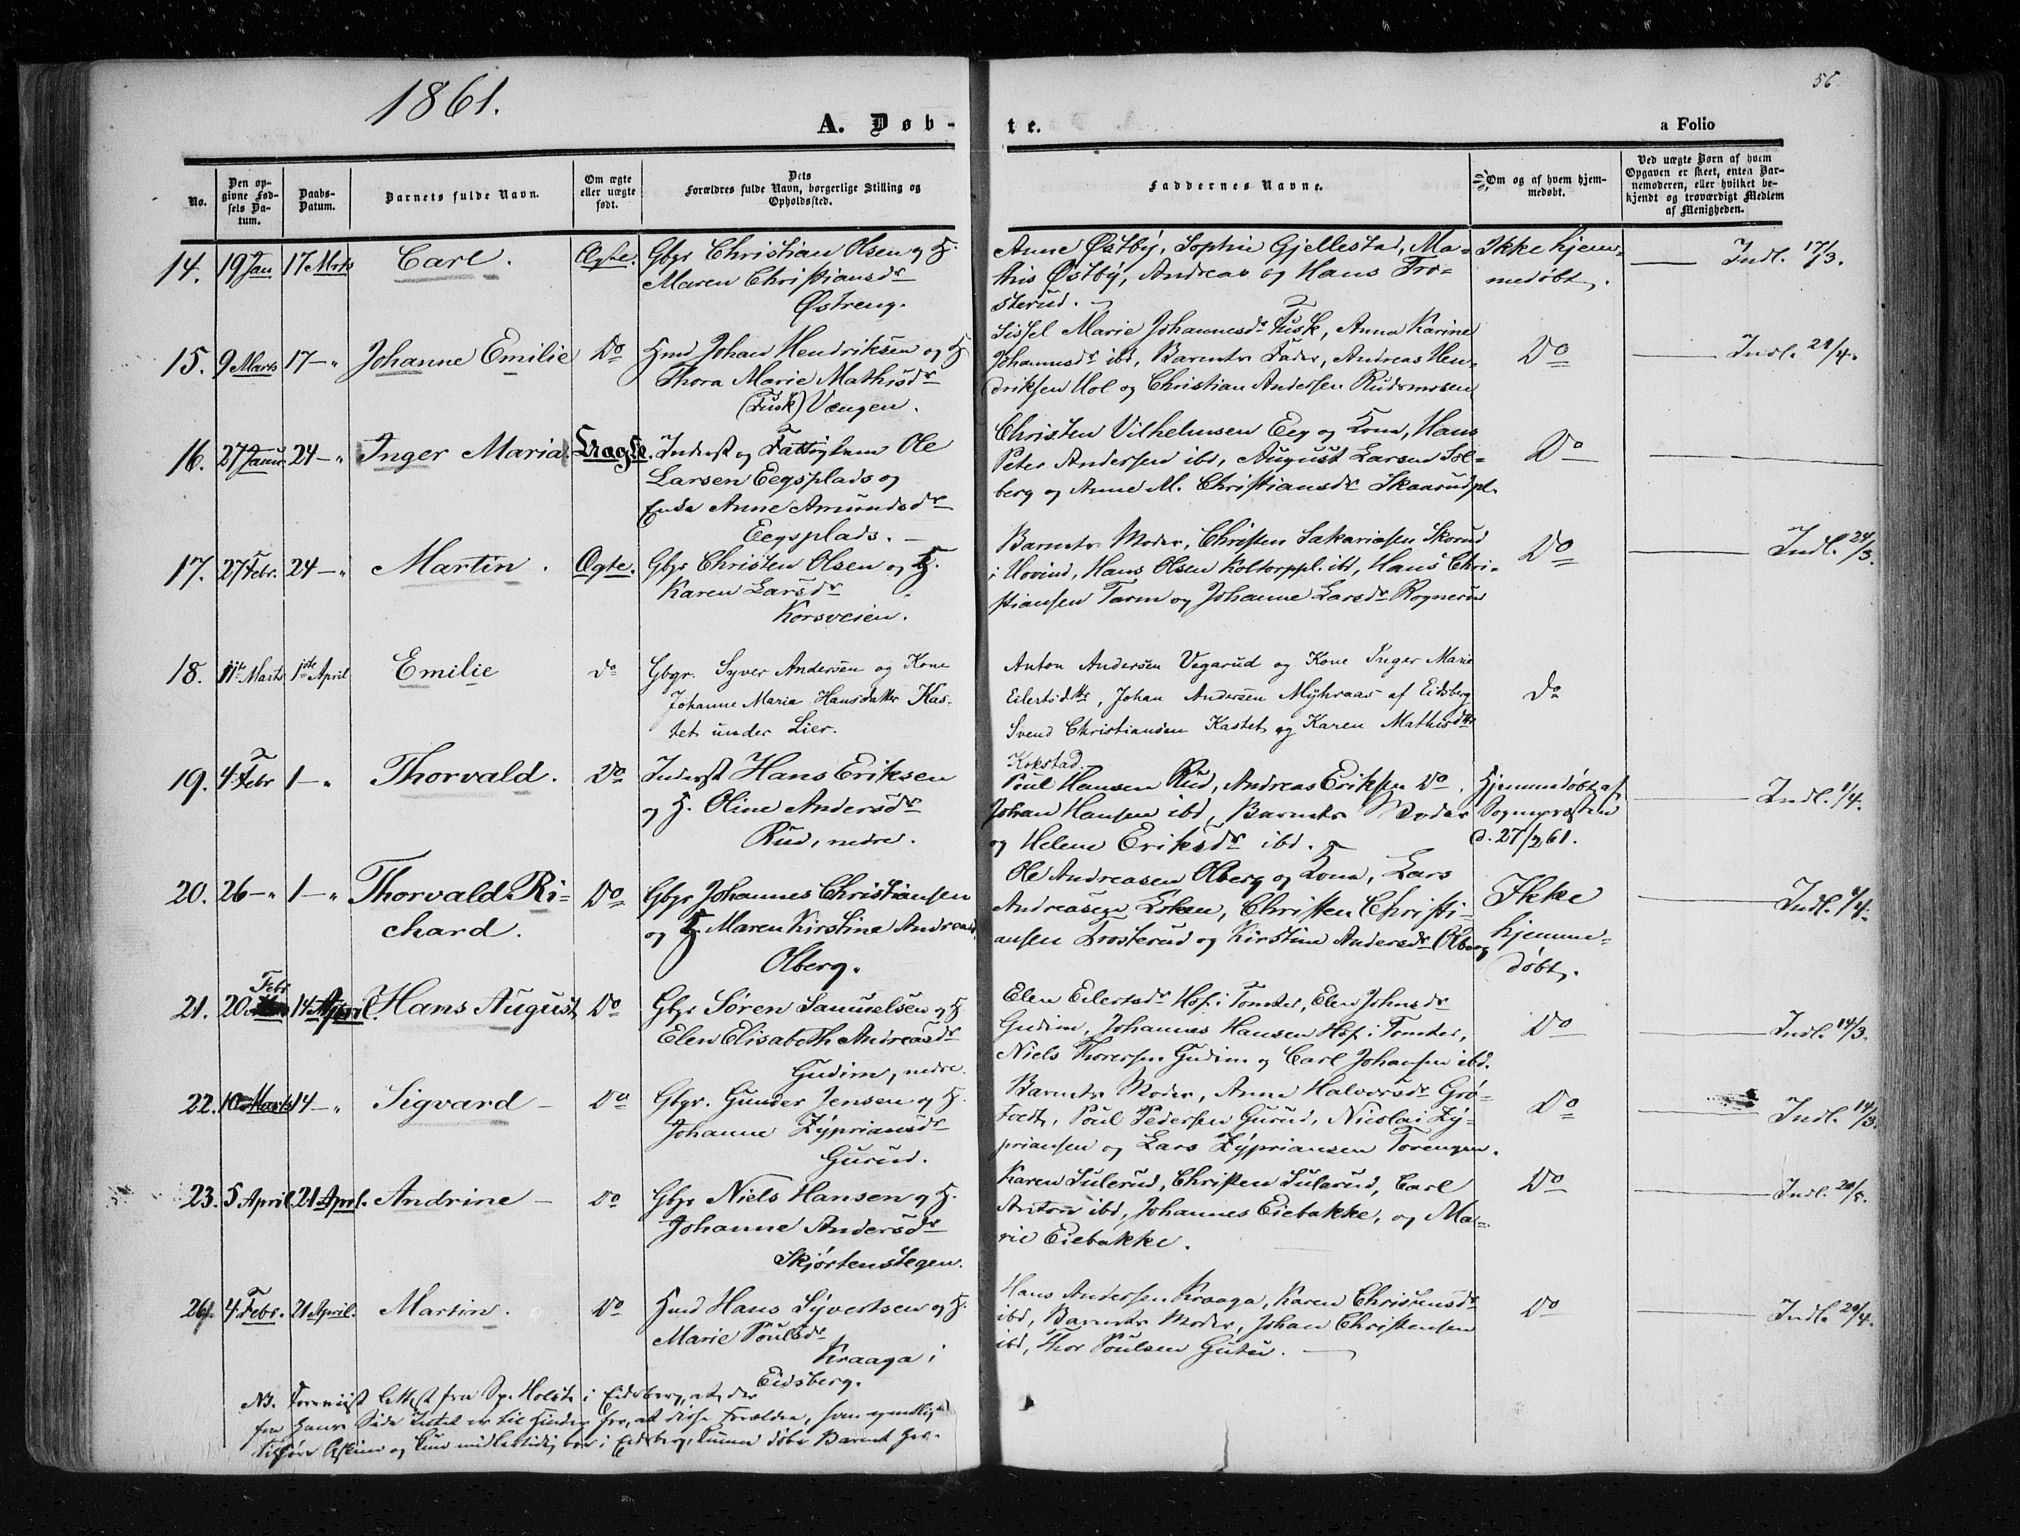 1861.
56
A. Døb-
te.
a Folio
No.
Den op-
givne Fød-
sels Da-
tum.
Daabs-
Datum.
Barnets fulde Navn.
Om ægte
eller uægte
født.
Dets
Forældres fulde Navn, borgerlige Stilling og
Opholdssted.
Faddernes Navne.
Om og af hvem hjem-
medøbt.
Ved uægte Børn af hvem
Opgaven er skeet, enten Bar-
nemoderen, eller hvilket be-
kjendt og troværdigt Medlem
af Menigheden.
14. 19 Jan 17 Mrts Carl. Ægte.
Gbgr Christian Olsen og H.
Maren Christiansdr
Østreng.
Anne Østby, Sophie Gjellestad, Ma-
this Østby, Andreas og Hans Tro-
sterud.
Ikke hjem-
medøbt.
Indl. 17/3.
15. 9 Marts 17 — " Johanne Emilie Do
Hmd Johan Hendriksen og H
Thora Marie Mathisdr
(Tusk) Vængen.
Sissel Marie Johannesdr Tusk, Anna Karine
Johannesdr ibd, Barnets Fader, Andreas Hen-
driksen Hol og Christian Andersen Rudsmosen
Do
Indl. 21/4.
16. 27 Janu. 24 — " Inger Maria. Uægte.
Inderst og Fattiglem Ole
Larsen Eegsplads og
Enke Anne Amundsdr
Eegsplads.
Christen Vilhelmsen Eeg og Kona, Hans
Peter Andersen ibd, August Larsen Sol-
berg og Anne M. Christiansdr Skaarudpl.
Do
17. 27 Febr. 24 — " Martin. Ægte.
Gbgr Christen Olsen og H.
Karen Larsdr
Korsveien.
Barnets Moder, Christen Sakariasen Skorud
i Hovind, Hans Olsen Koltorppl. ibd, Hans Chri-
stiansen Tarm og Johanne Larsdr Rognerud
Do
Indl. 24/3.
18. 11te Marts 1ste April Emilie do
Gbgr. Syver Andersen og Kone
Johanne Maria Hansdatter Kas-
tet under Lier.
Anton Andersen Vegarud og Kone Inger Marie
Eilertsdtr, Johan Andersen Myhraas af Eidsberg
Svend Christiansen Kastet og Karen Mathisdtr
Kokstad.
do
19. 4 Febr 1 — " Thorvald. Do
Inderst Hans Eriksen
og H. Oline Andersdr
Rud, nedre.
Poul Hansen Rud, Andreas Eriksen Do,
Johan Hansen ibd, Barnets Moder
og Helene Eriksdr ibd.
Hjemmedøbt af
Sognepræsten
d. 27/2 61.
Indl. 1/4.
20. 26 — " 1 — " Thorvald Ri-
chard. Do
Gbgr Johannes Christiansen
og H. Maren Kirstine Andreasdr
Olberg.
Ole Andreasen Olberg og Kona, Lars
Andreasen Esken, Christen Christi-
ansen Trosterud og Kirstine Andersdr Olberg
Ikke
hjemme-
døbt.
Indl. 1/4.
21. 20 Febr 14 April. Hans August Do
Gbgr Søren Samuelsen og H
Elen Elisabeth Andreasdr
Gudim, nedre.
Elen Eilertsdr Hof i Tomter, Elen Johnsdr
Gudim, Johannes Hansen Hof i Tomter,
Niels Thoresen Gudim og Carl Johansen ibd.
Do
Indl. 14/3.
22. 10 Marts 14 — " Sigvard — Do
Gbgr. Gunder Jensen og H.
Johanne Zyprians dr
Gurud.
Barnets Moder, Anne Halvorsdr Grø-
Foedt, Poul Pedersen Gurud, Nicolai Zy-
priansen og Lars Zypriansen Torengen.
Do
Indl. 14/3.
23. 5 April. 21 Aprl. Andrine — Do
Gbgr Niels Hansen og H.
Johanne Andersdr
Skjørtenstegen.
Karen Sulerud, Christen Sulerud, Carl
Anton ibd, Johannes Eiebakke, og Ma-
rie Eiebakke.
Do
Indl. 20/5.
24. 4. Febr. 21 April. Martin. Do
Hmd Hans Syvertsen og H.
Marie Poulsdr
Kraaga i
Eidsberg.
Hans Andersen Kraaga, Karen Christensdr
ibd, Barnets Moder, Johan Christensen
ibd, Thor Poulsen Gutu.
Do
Indl. 20/4.
NB. Foreviist Attest fra Sp. Holst i Eidsberg, at der
fra Hans Side Intet er til Hinder for, at disse Forældre, som egentlig
tilhøre Askim og kun midlertidig bor i Eidsberg, kunne døbe Barnet her.